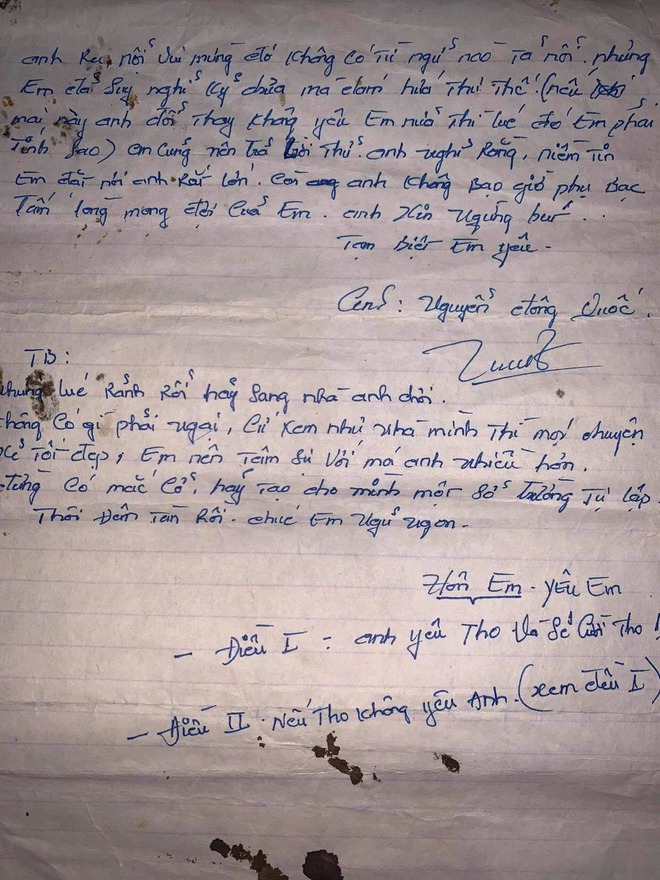 anh reo nổi vui mừng đó không có từ ngữ nào tả nổi. nhưng
Em đã suy nghĩ kỹ chưa mà dám hứa thư thế (nếu
mai này anh đổi thay không yêu Em nữa thì lúc đó Em phải
Tính sao) em cũng nên trả lời thử. anh nghĩ rằng, niềm tin
Em đối với anh rất lớn. còn anh không bao giờ phụ bạc
Tấm lòng mong đợi của Em. anh xin ngừng bút...
Tạm biệt Em yêu.
Nguyễn đông Quốc.
TB:
nhưng lúc Rảnh Rỗi hãy sang nhà anh chơi.
không có gì phải ngại, cứ xem như nhà mình thì mọi chuyện
sẽ tốt đẹp, Em nên tâm sự với má anh nhiều hơn.
đừng có mắc cỡ, hãy tạo cho mình một sở trường tự lập.
Thôi đêm tàn rồi. chúc Em ngủ ngon.
Hôn Em. yêu Em
- Điều I: anh yêu Tho và sẽ cưới Tho!
- Điều II. Nếu Tho không yêu Anh. (xem điều I)